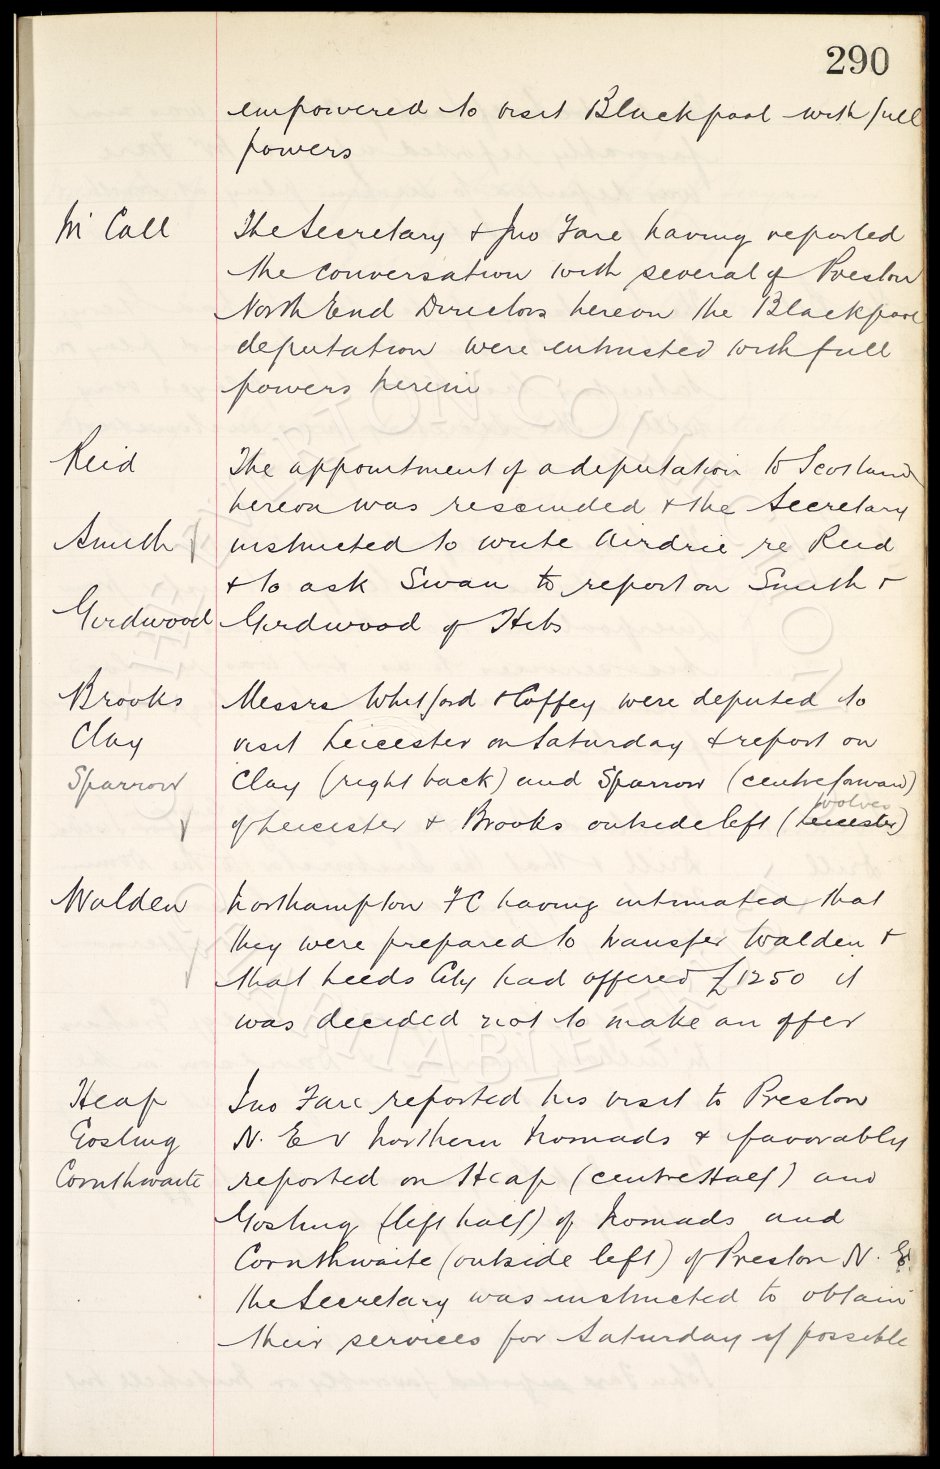 290
empowered to visit Blackpool with full
powers
Mc Call
The Secretary & Jno Fare having reported
the conversation with several of Preston
North End Directors hereon the Blackpool
deputation were entrusted with full
powers herein
Reid
The appointment of a deputation to Scotland
hereon was rescinded & the Secretary
Smith
instructed to write Airdrie re Reid
& to ask Swan to report on Smith &
Girdwood
Girdwood of Hibs
Brooks
Messrs Whitford & Coffey were deputed to
Clay
visit Leicester on Saturday & report on
Sparrow
Clay (right back) and Sparrow (centre forward)
wolves
of Leicester & Brooks outside left (Leicester)
Walden
Northampton FC having intimated that
they were prepared to transfer Walden &
that Leeds City had offered £1250 it
was decided not to make an offer
Heap
Jno Fare reported his visit to Preston
Gosling
N. E v Northern Nomads & favorably
Cornthwaite
reported on Heap (centre Half) and
Gosling (left half) of Nomads and
Cornthwaite (outside left) of Preston N. E.
the Secretary was instructed to obtain
their services for Saturday if possible